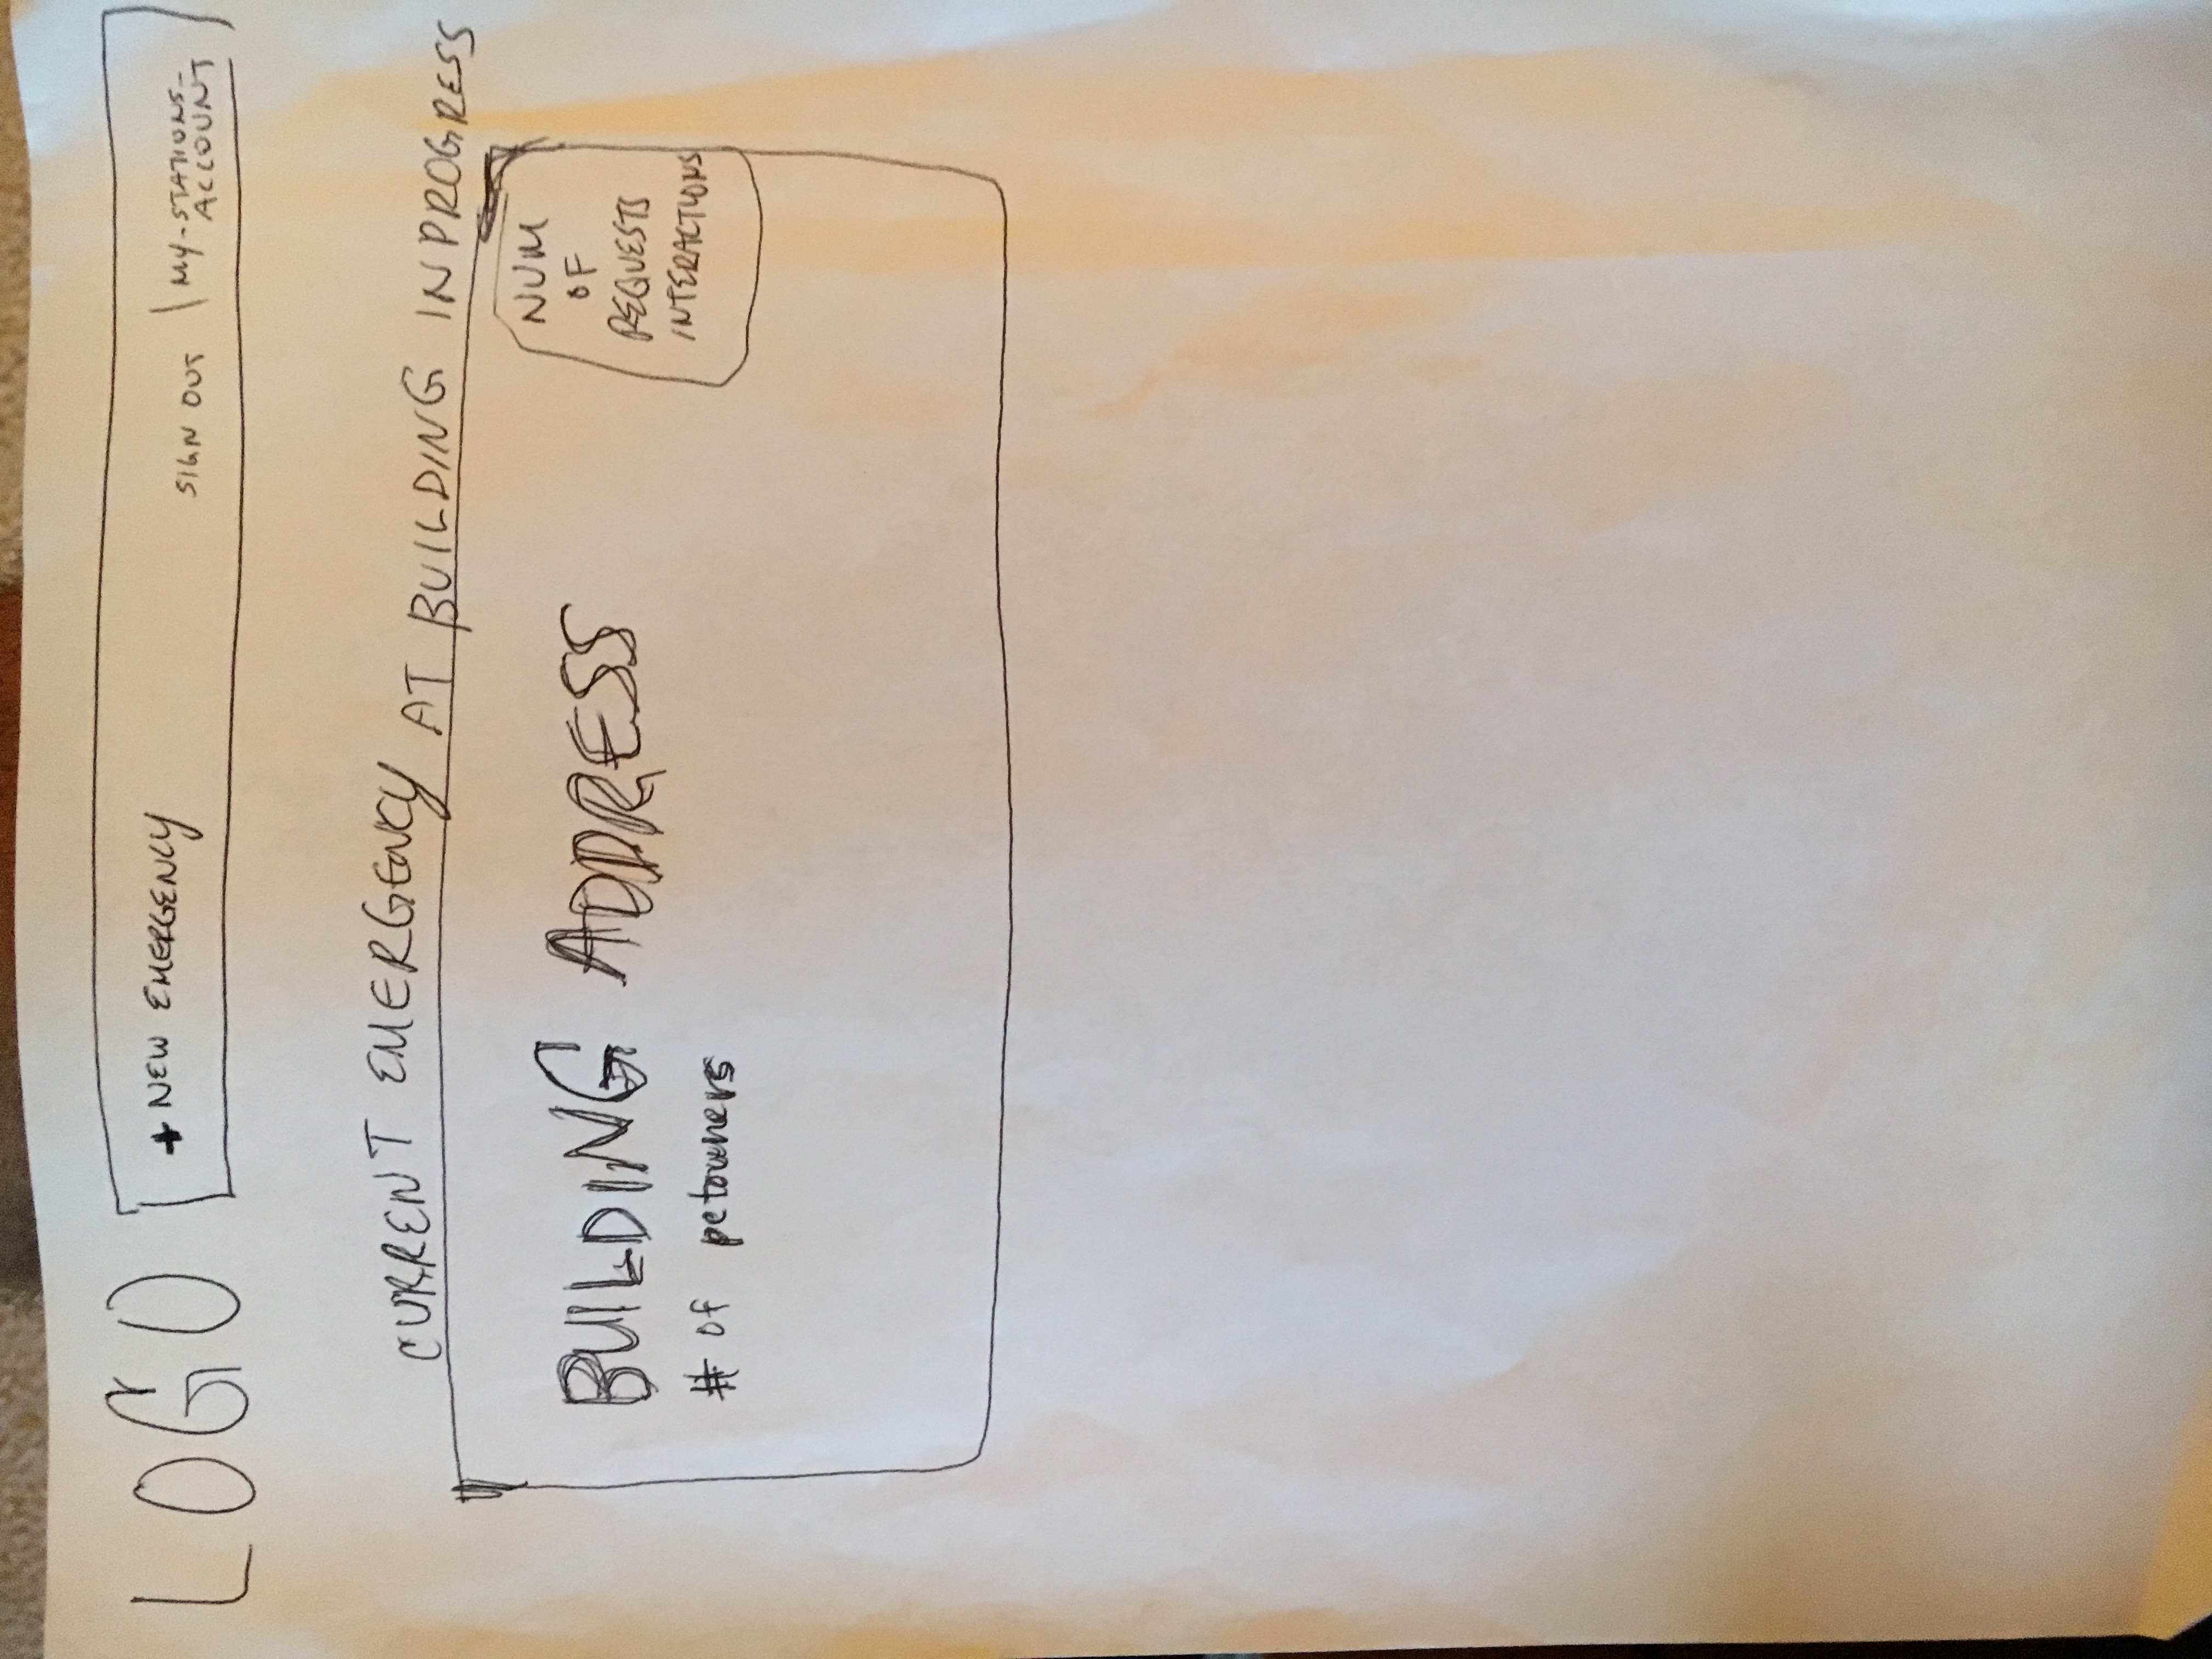 LOGO
+ NEW EMERGENCY
SIGN OUT | MY-STATIONS-
ACCOUNT
CURRENT EMERGENCY AT BUILDING IN PROGRESS
BUILDING ADDRESS
# of petowners
NUM
OF
REQUESTS
INTERACTIONS